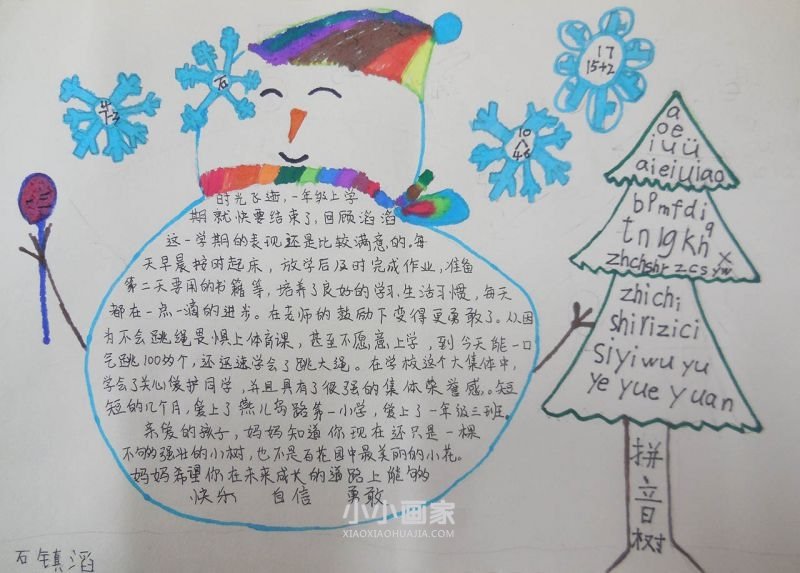 17
15+2
4
7-3
石
10
4 6
时光飞逝,一年级上学
期就快要结束了,回顾滔滔
这一学期的表现还是比较满意的。每
天早晨按时起床,放学后及时完成作业,准备
第二天要用的书籍等,培养了良好的学习、生活习惯,每天
都在一点一滴的进步。在老师的鼓励下变得更勇敢了。从因
为不会跳绳畏惧上体育课,甚至不愿意上学,到今天能一口
气跳100多个,还迅速学会了跳大绳。在学校这个大集体中,
学会了关心爱护同学,并且具有了很强的集体荣誉感。短
短的几个月,爱上了燕儿岛路第一小学,爱上了一年级三班。
亲爱的孩子,妈妈知道你现在还只是一棵
不够强壮的小树,也不是百花园中最美丽的小花。
妈妈希望你在未来成长的道路上能够
快乐 自信 勇敢
a
oe
iuü
aieiuiao
bpmfdi
tnlgkhq
x
zhchshrzcsyw
zhichi
shirizici
siyiwuyu
yeyueyuan
拼
音
树
石镇滔
小小画家
XIAOXIAOHUAJIA.COM